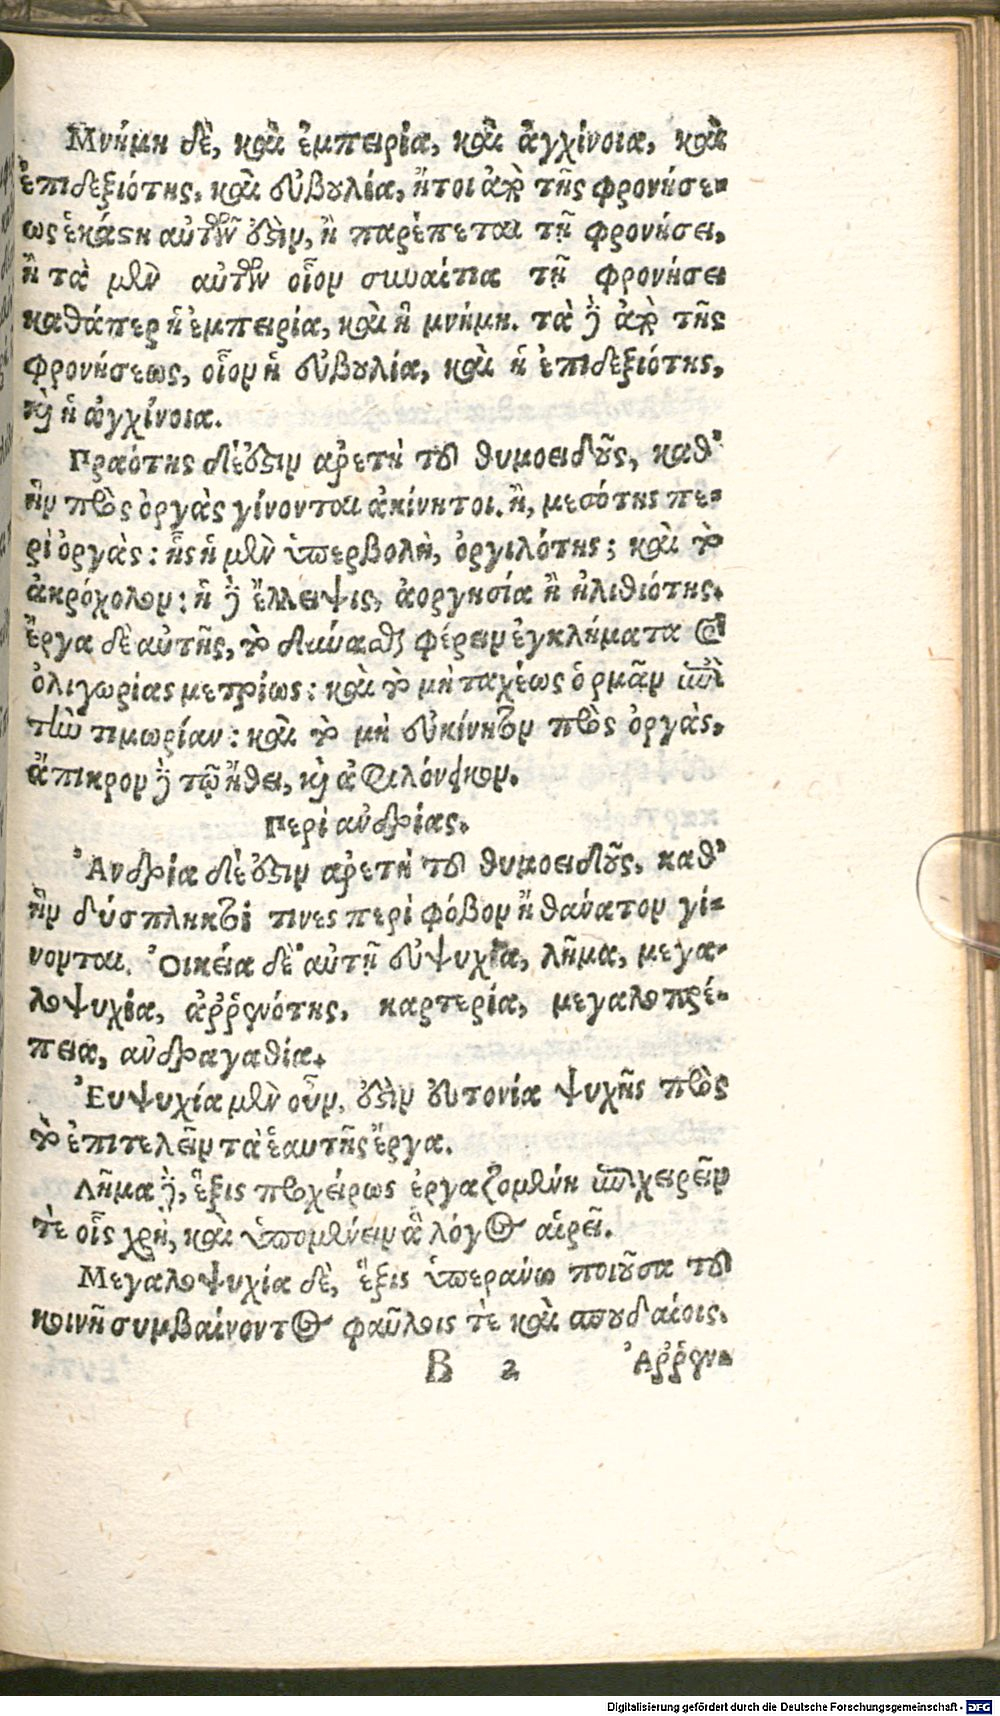 Μνήμη δὲ, καὶ ἐμπειρία, καὶ ἀγχίνοια, καὶ
ἐπιδεξιότης, καὶ εὐβουλία, ἤτοι ἀπὸ τῆς φρονήσε-
ως ἑκάστη αὐτῶν ὅζιν, ἢ παρέπεται τῇ φρονήσει,
ἢ τὰ μὲν αὐτῶν οἷον συναίτια τῇ φρονήσει
καθάπερ ἡ ἐμπειρία, καὶ ἡ μνήμη. τὰ δὲ ἀπὸ τῆς
φρονήσεως, οἷον ἡ εὐβουλία, καὶ ἡ ἐπιδεξιότης,
καὶ ἡ ἀγχίνοια.
Πραότης δέ ἐστιν ἀρετὴ τοῦ θυμοειδοῦς, καθ’
ἣν πρὸς ὀργὰς γίνονται ἀκίνητοι. ἢ, μεσότης πε-
ρὶ ὀργὰς: ἧς ἡ μὲν ὑπερβολὴ, ὀργιλότης; καὶ τὸ
ἀκρόχολον: ἡ δὲ ἔλλειψις, ἀοργησία ἢ ἠλιθιότης.
Ἔργα δὲ αὐτῆς, τὸ δύνασθαι φέρειν ἐγκλήματα καὶ
ὀλιγωρίας μετρίως: καὶ τὸ μὴ ταχέως ὁρμᾶν ἐπὶ
τὴν τιμωρίαν: καὶ τὸ μὴ εὐκίνητον πρὸς ὀργὰς,
ἄπικρον δὲ τῷ ἤθει, καὶ ἀφιλόνεικον.
Περὶ ἀνδρίας.
Ἀνδρία δέ ἐστιν ἀρετὴ τοῦ θυμοειδοῦς, καθ’
ἣν δύσπληκτοί τινες περὶ φόβον ἢ θάνατον γί-
νονται. Οἰκεία δὲ αὐτῇ εὐψυχία, λῆμα, μεγα-
λοψυχία, ἀῤῥενότης, καρτερία, μεγαλοπρέ-
πεια, ἀνδραγαθία.
Ἐυψυχία μὲν οὖν, ἐστὶν εὐτονία ψυχῆς πρὸς
τὸ ἐπιτελεῖν τὰ ἑαυτῆς ἔργα.
Λῆμα δὲ, ἕξις προχείρως ἐργαζομένη ἐπιχειρεῖν
τὲ οἷς χρὴ, καὶ ὑπομένειν ἃ λόγος αἱρεῖ.
Μεγαλοψυχία δὲ, ἕξις ὑπεράνω ποιοῦσα τοῦ
κοινῇ συμβαίνοντος φαῦλοις τὲ καὶ σπουδαίοις.
B 2 Ἀῤῥεν-
Digitalisierung gefördert durch die Deutsche Forschungsgemeinschaft - DFG